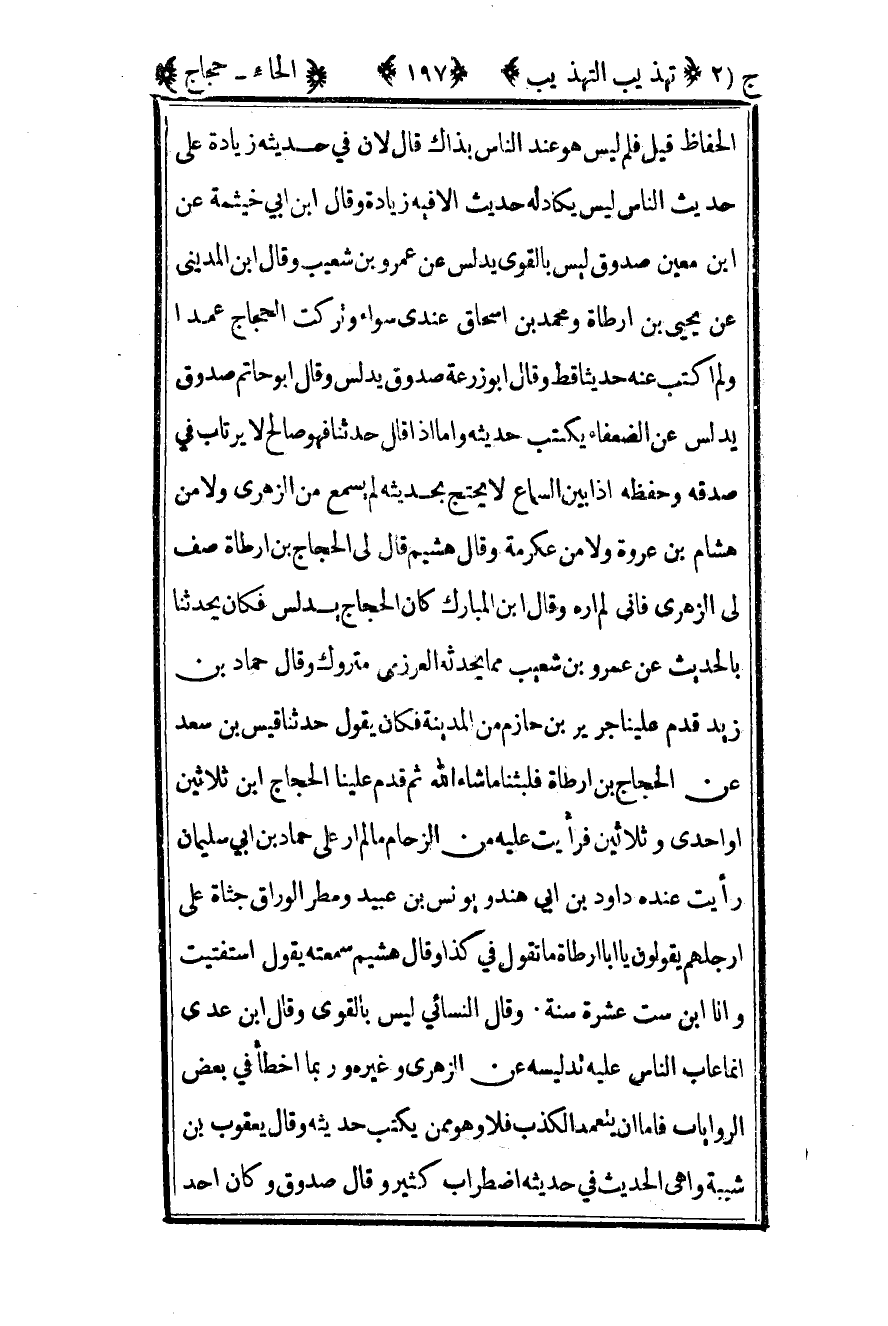 ج (٢ ﴿ تهذيب التهذيب ﴾ ﴿١٩٧﴾ ﴿ الحاء ـ حجاج ﴾
الحفاظ قيل فلم ليس هو عند الناس بذاك قال لان في حديثه زيادة على
حديث الناس ليس يكاد له حديث الا فيه زيادة وقال ابن ابي خيثمة عن
ابن معين صدوق ليس بالقوى يدلس عن عمرو بن شعيب وقال ابن المدينى
عن يحيى بن ارطاة ومحمد بن اسحاق عندى سواء وتركت الحجاج عمدا
ولم اكتب عنه حديثا قط وقال ابو زرعة صدوق يدلس وقال ابو حاتم صدوق
يدلس عن الضعفاء يكتب حديثه واما اذا قال حدثنا فهو صالح لا يرتاب في
صدقه وحفظه اذا بين السماع لا يحتج بحديثه لم يسمع من الزهرى ولا من
هشام بن عروة ولا من عكرمة وقال هشيم قال لى الحجاج بن ارطاة صف
لى الزهرى فانى لم اره وقال ابن المبارك كان الحجاج يدلس فكان يحدثنا
بالحديث عن عمرو بن شعيب مما يحدثه العرزمى متروك وقال حماد بن
زيد قدم علينا جرير بن حازم من المدينة فكان يقول حدثنا قيس بن سعد
عن الحجاج بن ارطاة فلبثنا ما شاء الله ثم قدم علينا الحجاج ابن ثلاثين
او احدى و ثلاثين فرأيت عليه من الزحام ما لم ار على حماد بن ابي سليمان
رأيت عنده داود بن ابي هند و يونس بن عبيد ومطر الوراق جثاة على
ارجلهم يقولون يا ابا ارطاة ما تقول في كذا وقال هشيم سمعته يقول استفتيت
و انا ابن ست عشرة سنة ٠ وقال النسائي ليس بالقوى وقال ابن عدى
انما عاب الناس عليه تدليسه عن الزهرى و غيره و ربما اخطأ في بعض
الروايات فاما ان يتعمد الكذب فلا وهو ممن يكتب حديثه وقال يعقوب بن
شيبة واهى الحديث في حديثه اضطراب كثير و قال صدوق و كان احد